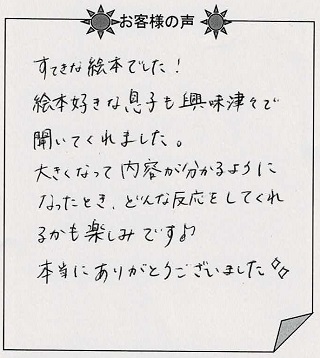 お客様の声
すてきな絵本でした！
絵本好きな息子も興味津々で
聞いてくれました。
大きくなって内容が分かるように
なったとき、どんな反応をしてくれ
るかも楽しみです♪
本当にありがとうございました